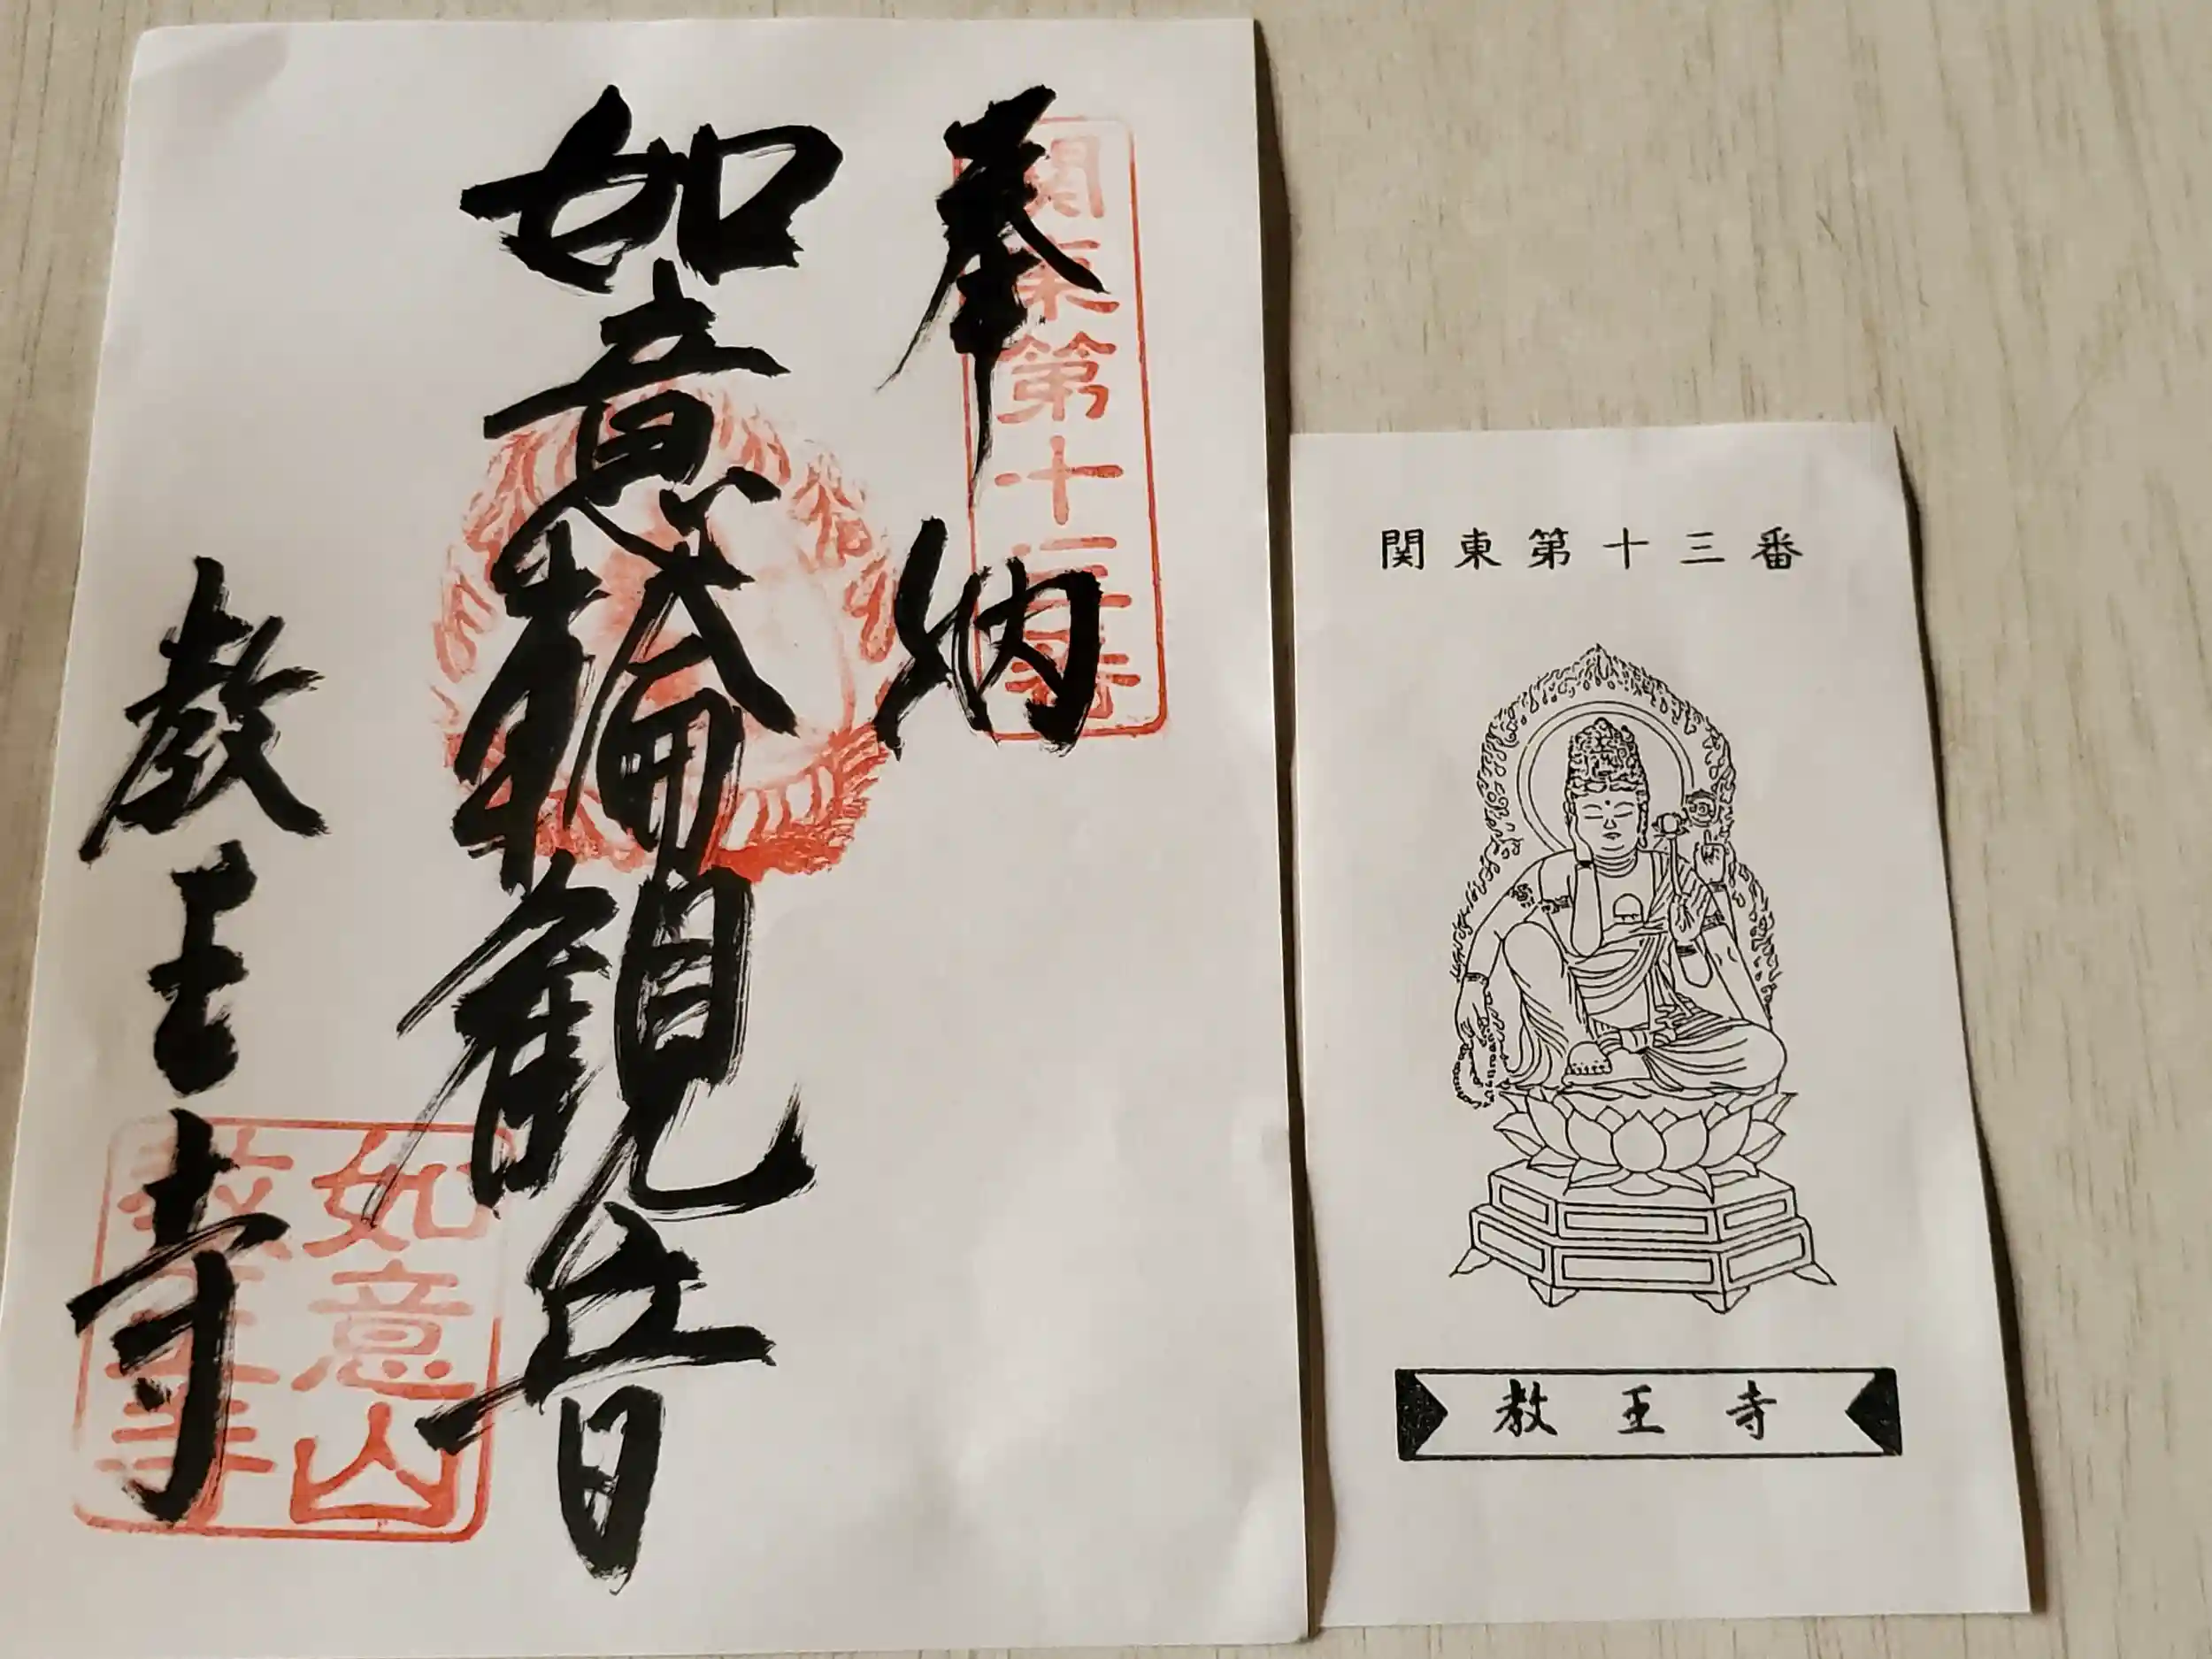 奉納
関東第十三番
如意輪観音
教王寺
如意山
教王寺
関東第十三番
教王寺